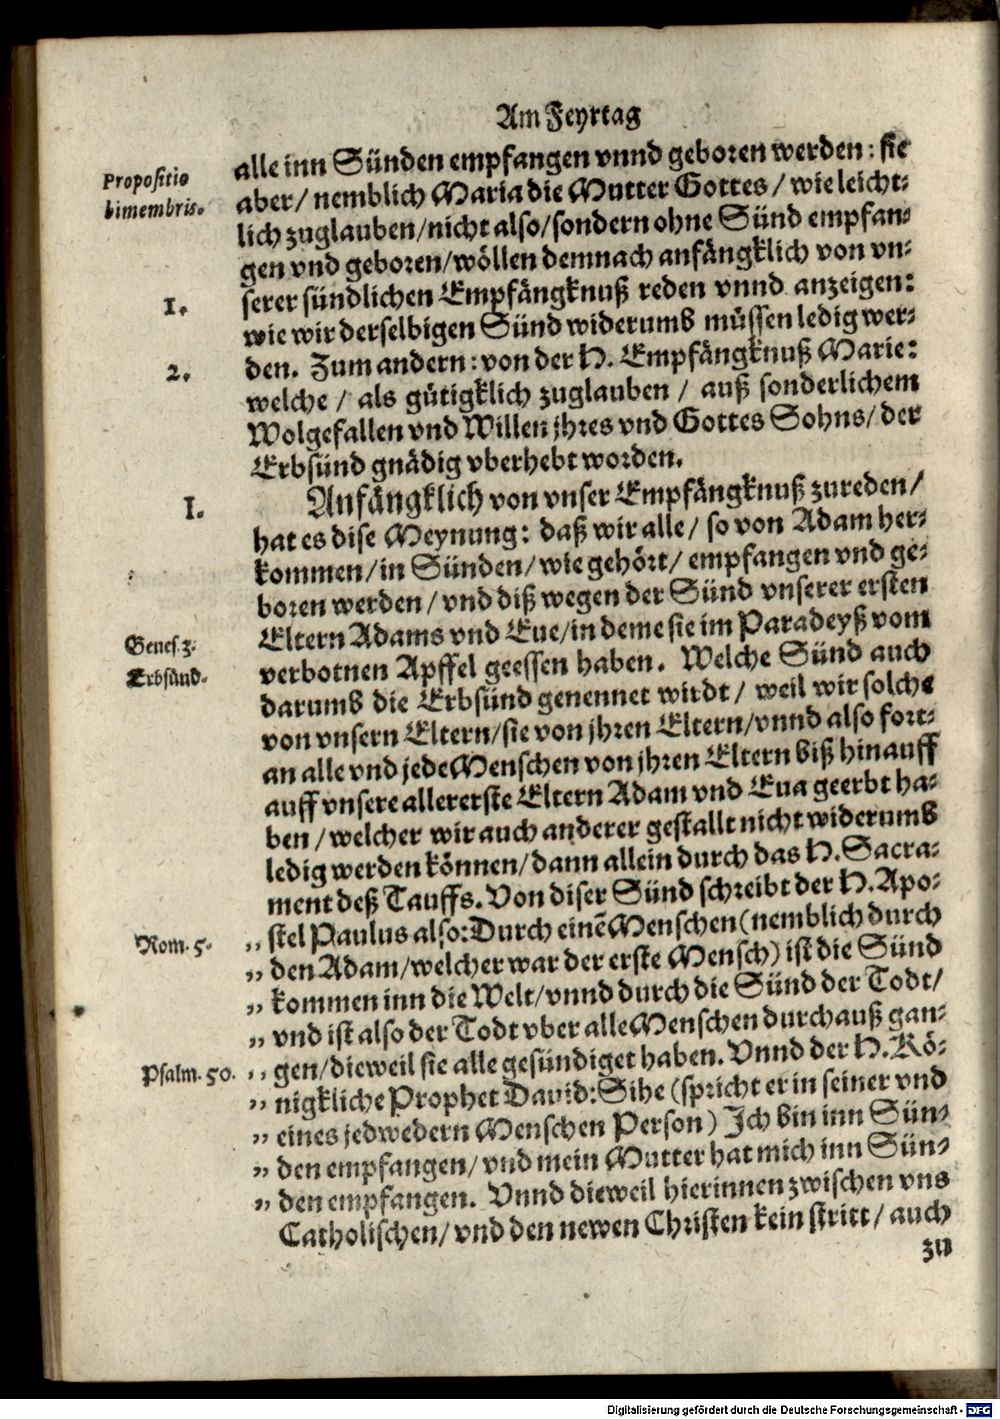 Am Feyrtag
alle inn Sünden empfangen vnnd geboren werden: sie
Propositio
bimembris.
aber/ nemblich Maria die Mutter Gottes/ wie leicht-
lich zuglauben/ nicht also/ sondern ohne Sünd empfan-
gen vnd geboren/ wöllen demnach anfängklich von vn-
1.
serer sündlichen Empfängknuß reden vnnd anzeigen:
wie wir derselbigen Sünd widerumb müssen ledig wer-
2.
den. Zum andern: von der H. Empfängknuß Marie:
welche / als gütigklich zuglauben / auß sonderlichem
Wolgefallen vnd Willen jhres vnd Gottes Sohns/ der
Erbsünd gnädig vberhebt worden.
I.
Anfängklich von vnser Empfängknuß zureden/
hat es dise Meynung: daß wir alle/ so von Adam her-
kommen/ in Sünden/ wie gehört/ empfangen vnd ge-
boren werden/ vnd diß wegen der Sünd vnserer ersten
Genes. 3.
Eltern Adams vnd Eue/ in deme sie im Paradeyß vom
Erbsünd.
verbotnen Apffel geessen haben. Welche Sünd auch
darumb die Erbsünd genennet wirdt/ weil wir solche
von vnsern Eltern/ sie von jhren Eltern/ vnnd also fort-
an alle vnd jede Menschen von jhren Eltern biß hinauff
auff vnsere allererste Eltern Adam vnd Eua geerbt ha-
ben / welcher wir auch anderer gestallt nicht widerumb
ledig werden können/ dann allein durch das H. Sacra-
ment deß Tauffs. Von diser Sünd schreibt der H. Apo-
Rom. 5.
„ stel Paulus also: Durch einē Menschen (nemblich durch
„ den Adam/ welcher war der erste Mensch) ist die Sünd
„ kommen inn die Welt/ vnnd durch die Sünd der Todt/
„ vnd ist also der Todt vber alle Menschen durchauß gan-
Psalm. 50.
„ gen/ dieweil sie alle gesündiget haben. Vnnd der H. Kö-
„ nigkliche Prophet Dauid: Sihe (spricht er in seiner vnd
„ eines jedwedern Menschen Person) Ich bin inn Sün-
„ den empfangen/ vnd mein Mutter hat mich inn Sün-
„ den empfangen. Vnnd dieweil hierinnen zwischen vns
Catholischen/ vnd den newen Christen kein stritt/ auch
zu
Digitalisierung gefördert durch die Deutsche Forschungsgemeinschaft - DFG